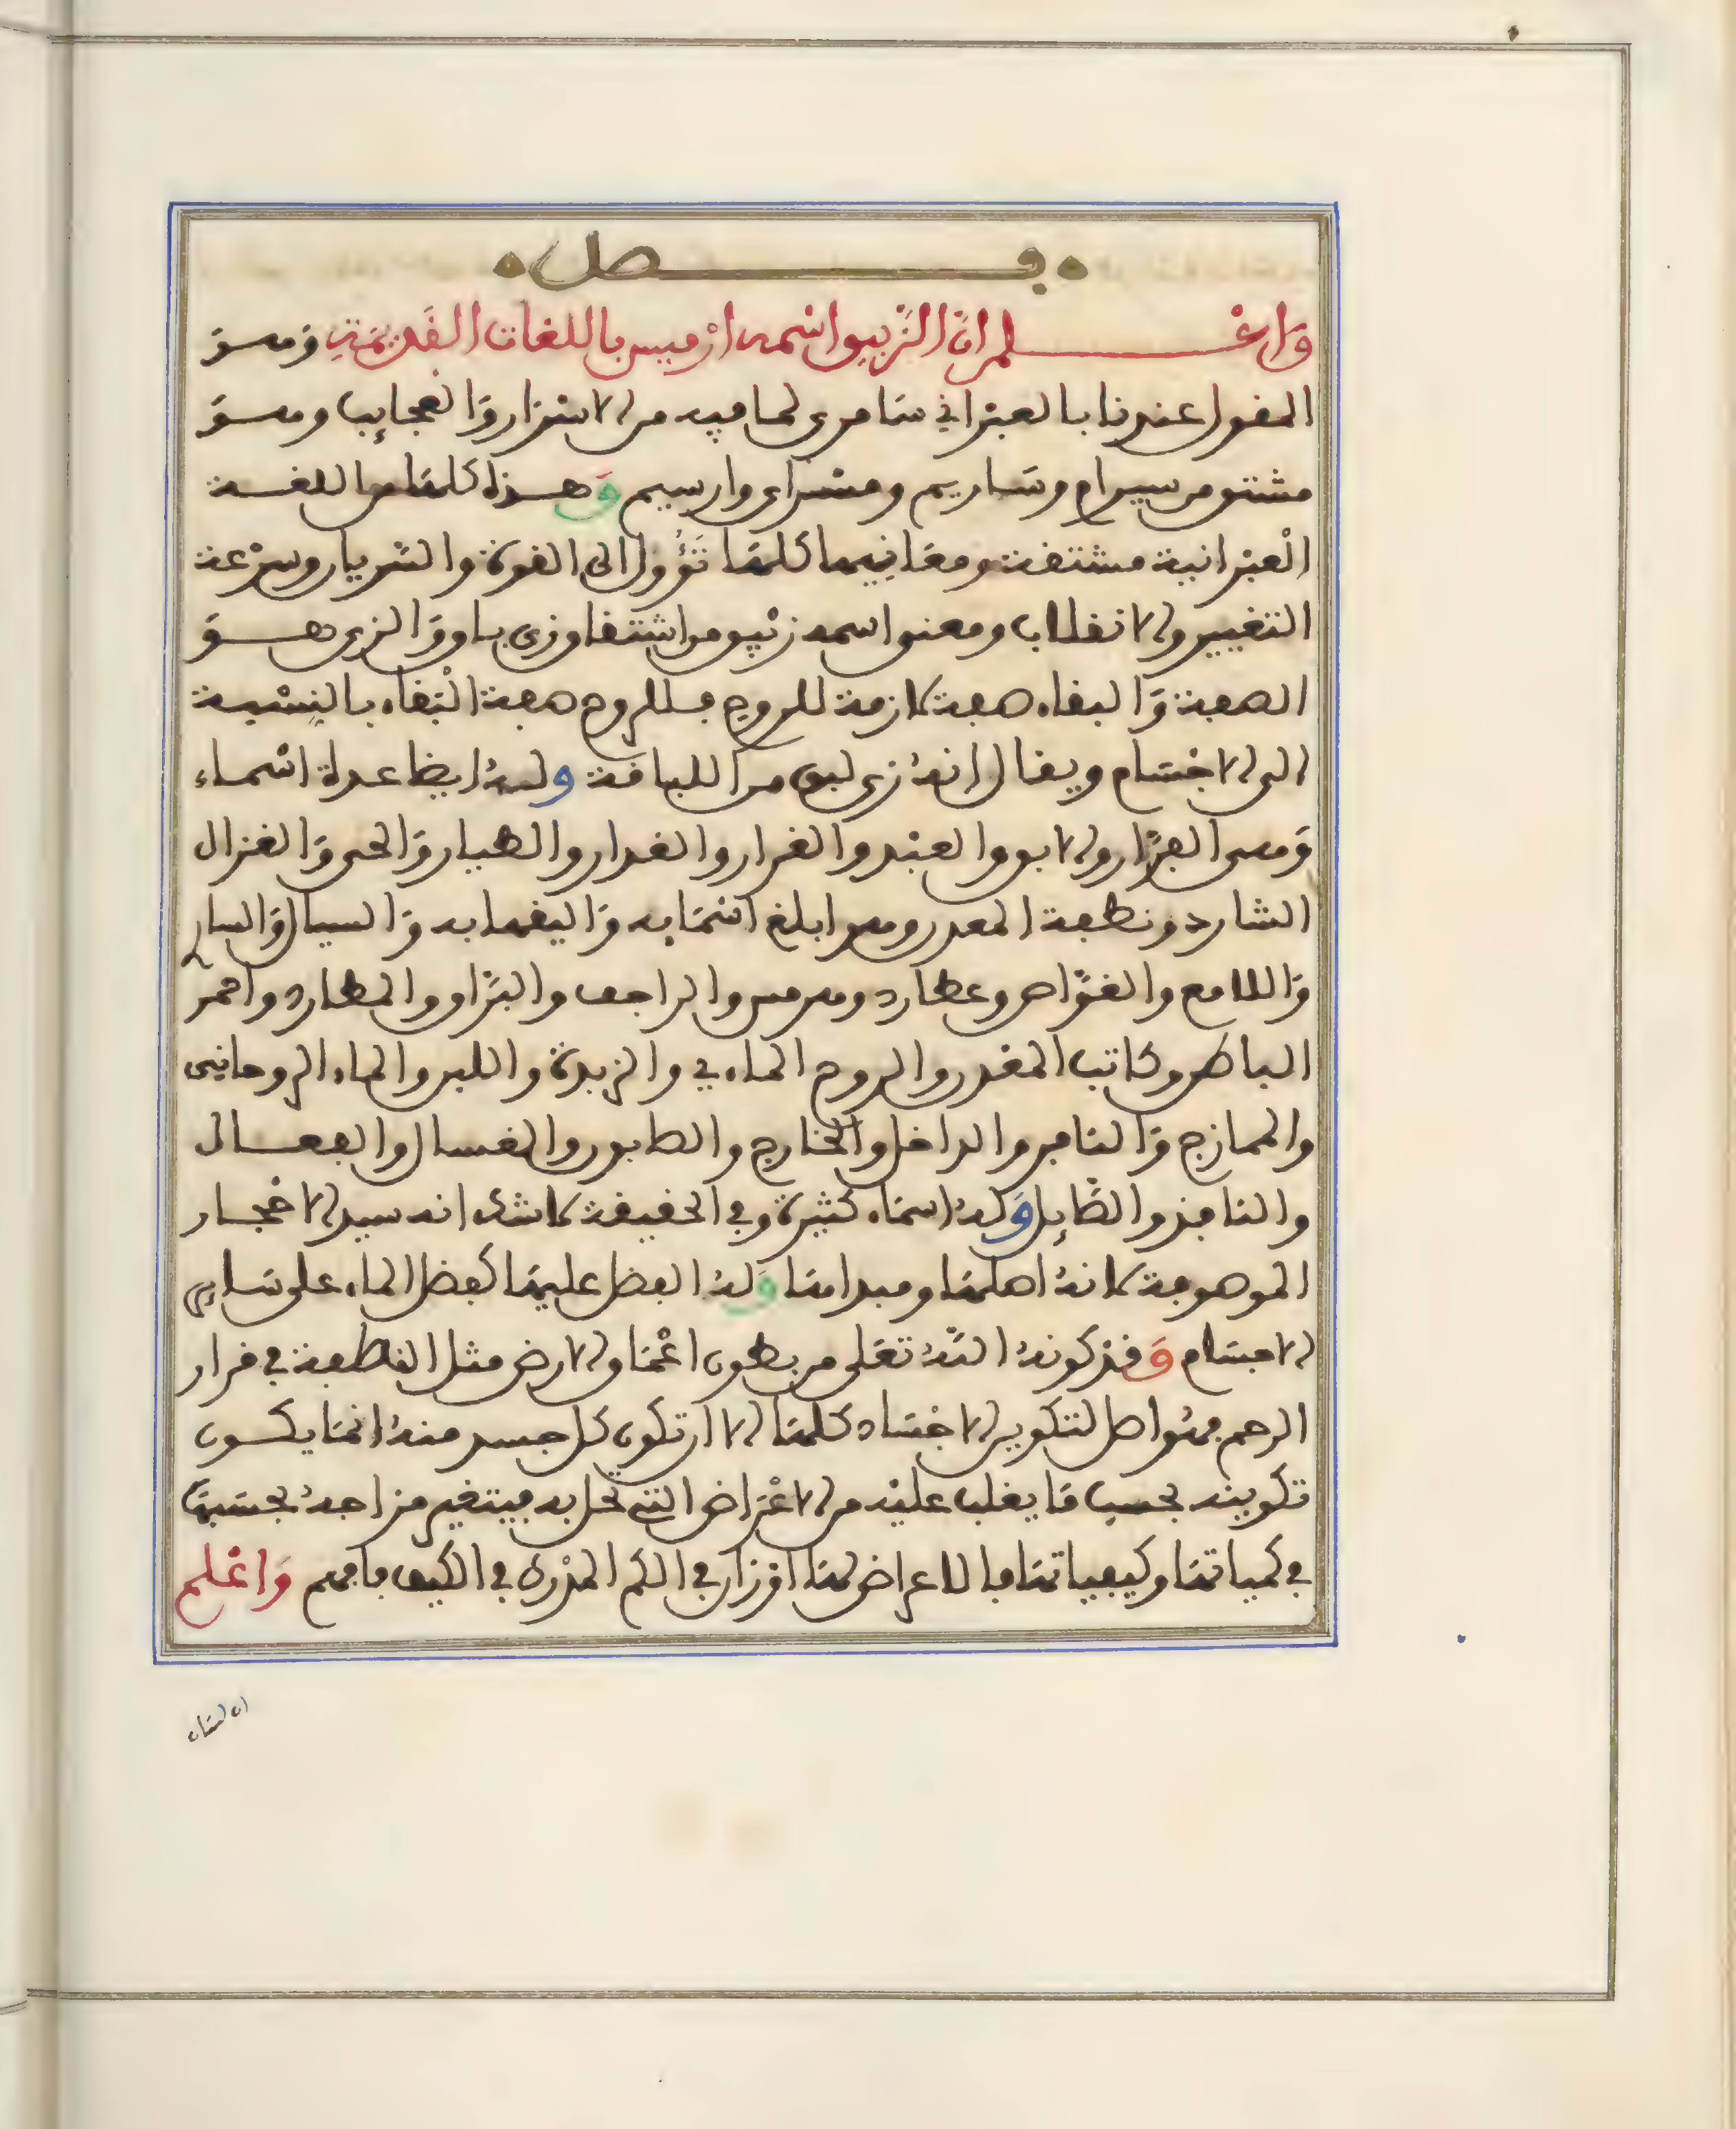 فصل
واعلم ان الزيبق اسمه ارميس باللغات القديمة وهو
المقول عندنا بالعبراني سامري لما فيه من الاسرار والعجايب وهو
مشتق من سيرام وساريم ومسراي وارسيم وهذه كلها من اللغة
العبرانية مشتقة ومعانيها كلها تؤول الى القوة والسريان وسرعة
التغيير والانقلاب ومعنى اسمه زيبق من اشتقاق زي باق والزي هو
الصفة والبقاء صفة لازمة للروح فللروح صفة البقاء بالنسبة
الى الاجسام ويقال انه زي لبق من اللباقة وله ايضا عدة اسماء
وهي الفرار والابق والعبد والغرار والغدار والطيار والحي والغزال
الشارد ونطفة المعدن وهو ابلغ اسمايه واليقها به والسيال والسار
واللامع والغواص وعطارد وهرمس والراجف والبراق والمطارد واحمر
الباطن وكاتب المقدر والروح الماءي والزبدة واللبن والماء الروحاني
والممازج والنافر والداخل والخارج والصابون والغسال والفعال
والنافذ والطايل وله اسماء كثيرة وفي الحقيقة لا شك انه سيد الاحجار
الموصوفة لانه اصلها ومبداها وله الفضل عليها كفضل الماء على ساير
الاجسام وقد كونه الله تعلى من بطون اعماق الارض مثل النطفة في قرار
الرحم فهو اصل لتكوين الاجساد كلها الا ان تكون كل جسد منه انما يكون
تكوينه بحسب ما يغلب عليه من الاعراض التي تحل به فيتغير مزاجه بحسبها
في كمياتها وكيفياتها فالاعراض لها اوزان في الكم المدرك في الكيف فافهم واعلم
ان لهذا